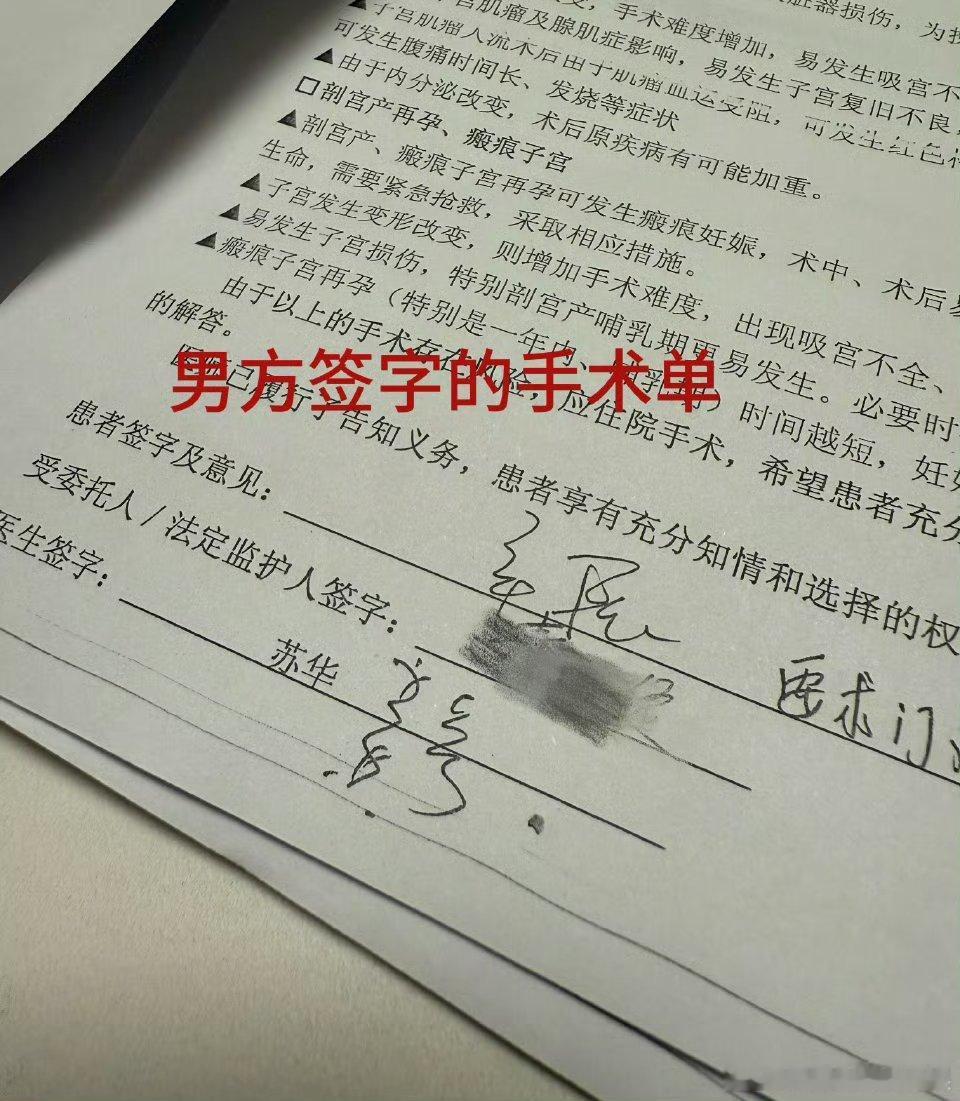 改变，手术难度增加，易发生吸宫不
宫肌瘤及腺肌症影响，易发生子宫复旧不良，
子宫肌瘤人流术后由于肌瘤血运受阻，可发生红色
可发生腹痛时间长、发烧等症状
▲由于内分泌改变，术后原疾病有可能加重。
□剖宫产再孕、瘢痕子宫
▲剖宫产、瘢痕子宫再孕可发生瘢痕妊娠，术中、术后易
生命，需要紧急抢救，采取相应措施。
▲子宫发生变形改变，则增加手术难度，出现吸宫不全、
▲易发生子宫损伤，特别剖宫产哺乳期更易发生。必要时
▲瘢痕子宫再孕（特别是一年内、哺乳期）时间越短，妊
由于以上的手术存在风险，应住院手术，希望患者充分
的解答。
医师已履行了告知义务，患者享有充分知情和选择的权
男方签字的手术单
患者签字及意见：
要求门
受委托人/法定监护人签字：
医生签字：
苏华